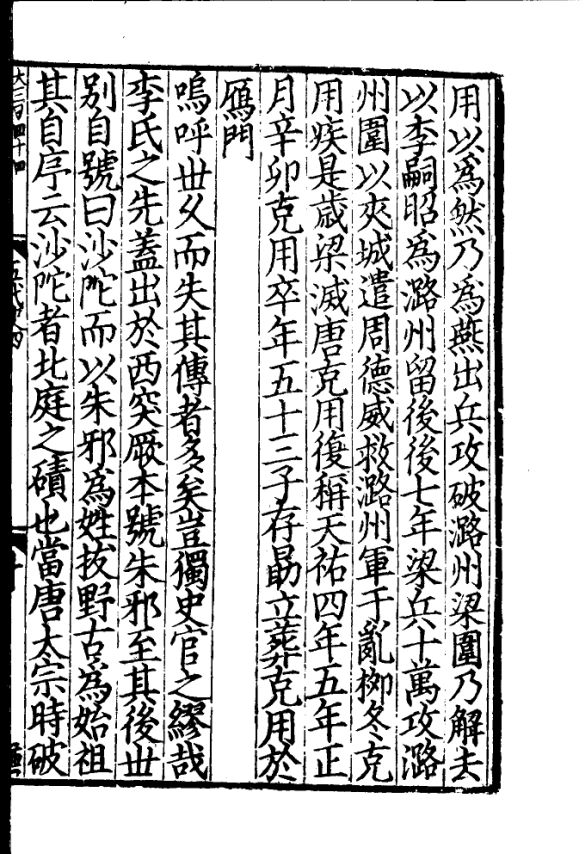 用以為然乃為燕出兵攻破潞州梁圍乃解去
以李嗣昭為潞州留後後七年梁兵十萬攻潞
州圍以夾城遣周德威救潞州軍于亂柳冬克
用疾是歲梁滅唐克用復稱天祐四年五年正
月辛卯克用卒年五十三子存勗立葬克用於
鴈門
嗚呼世久而失其傳者多矣豈獨史官之繆哉
李氏之先蓋出於西突厥本號朱邪至其後世
別自號曰沙陀而以朱邪為姓拔野古為始祖
其自序云沙陀者北庭之磧也當唐太宗時破
大三百四十四